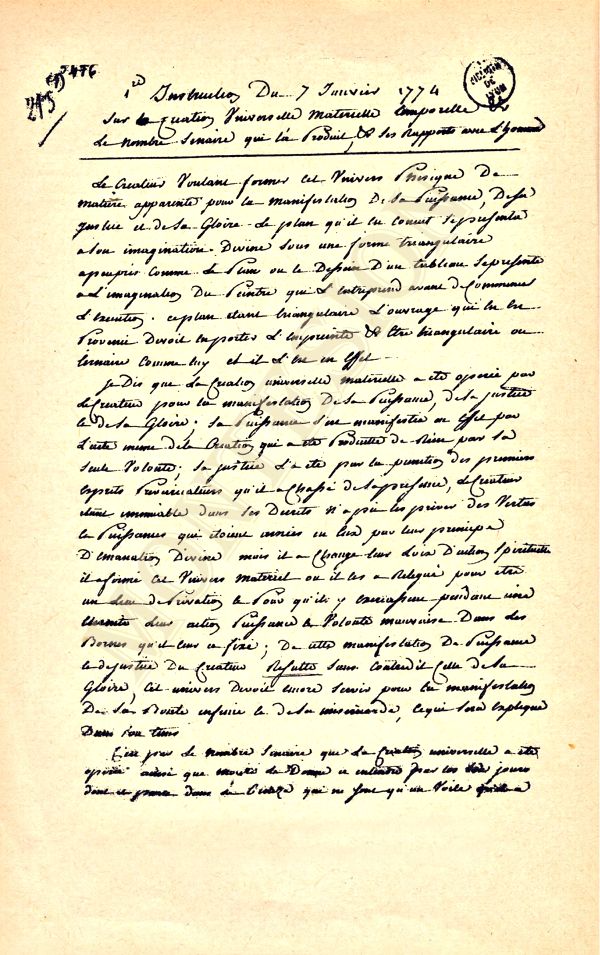 5476
1re Instruction Du 7 Janvier 1774
Sur la Creation Universelle Materielle temporelle &
Le nombre Senaire qui l'a Produit, & Ses Rapports avec L'homme
Le Createur Voulant former cet Univers Phisique De
matiere apparente pour la manifestation De Sa Puissance, De Sa
justice et de Sa Gloire. Le plan qu'il en conçut Se presenta
a Son imagination Divine Sous une forme triangulaire
apeuprès comme Le Plan ou le Dessein D'un tableau Se presente
a L'imagination Du Peintre qui L'entreprend avant de Commencer
L'execution. ce plan etant triangulaire L'ouvrage qui en est
Provenu Devoit en porter L'empreinte & être triangulaire ou
ternaire comme luy et il L'est en effet
Je Dis que La Creation universelle materielle a été operée par
Le Createur pour la manifestation De Sa Puissance, de Sa justice
& de Sa Gloire; Sa Puissance S'est manifestée en effet par
L'acte meme de la Creation qui a été Produite de Rien par Sa
Seule Volonté; Sa justice L'a été par la punition des premiers
esprits Prevaricateurs qu'il a Chassé de Sa presence, Le Createur
etant immuable dans Ses Decrets n'a pu les priver des Vertus
& Puissances qui étoient innées en eux par leur principe
D'emanation Divine mais il a Changé leur Loix D'action Spirituelle
il a formé cet Univers materiel ou il les a Relegué pour etre
un Lieu de Privation & Pour qu'ils y exercassent pendant une
eternité Leur action Puissance & Volonté mauvaise Dans des
Bornes qu'il leur a fixé; De cette manifestation De Puissance
& de justice Du Createur Resulte Sans Contredit Celle de Sa
Gloire, Cet univers Devoit encore Servir pour la manifestation
De Sa Bonté infinie & de Sa misericorde, ce qui Sera expliqué
Dans Son tems
C'est par Le nombre Senaire que La Creation universelle a été
operée ainsi que Le Donne a entendre par les Six jours
dont il parle dans la Genèze qui ne Sont qu'un Voile